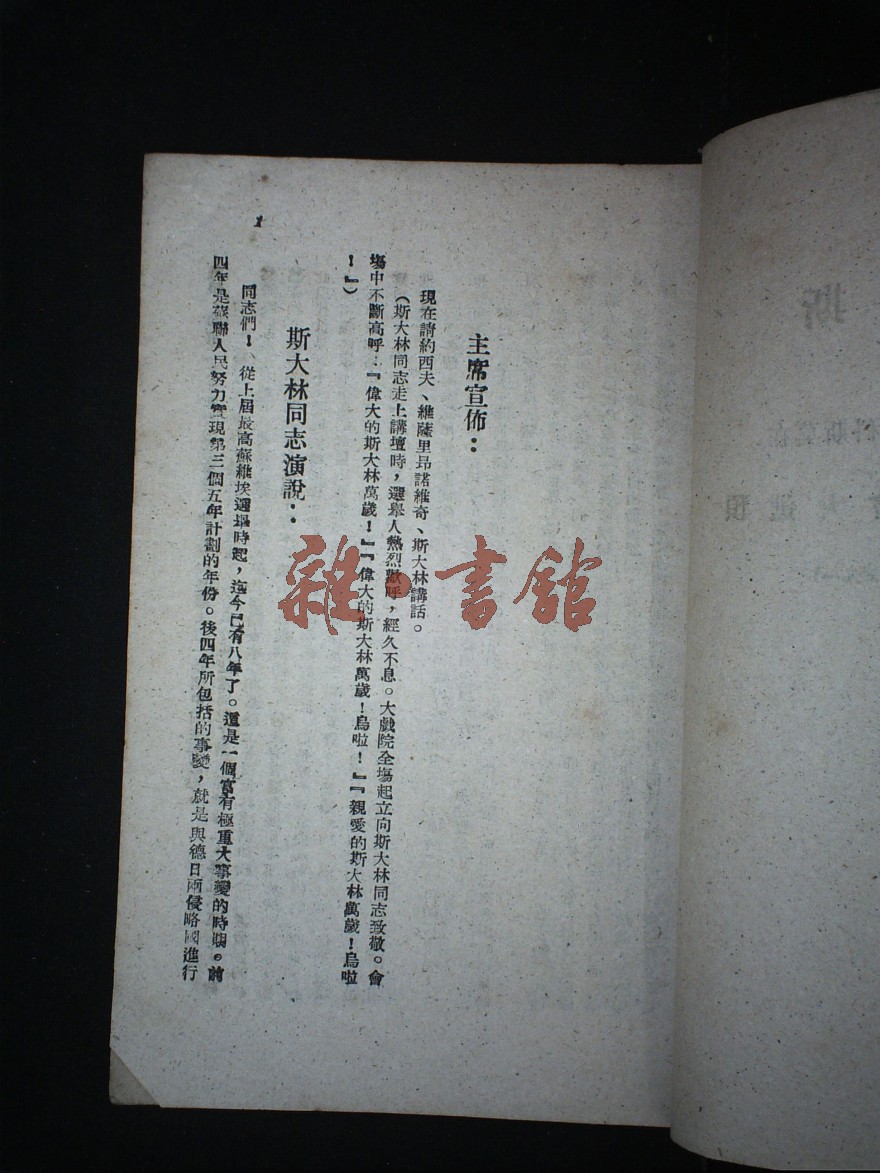 主席宣佈：
現在請約西夫、維薩里昂諾維奇、斯大林講話。
（斯大林同志走上講壇時，選舉人熱烈歡呼，經久不息。大戲院全塲起立向斯大林同志致敬。會
塲中不斷高呼：『偉大的斯大林萬歲！』『偉大的斯大林萬歲！烏啦！』『親愛的斯大林萬歲！烏啦
！』）
斯大林同志演說：
同志們！從上屆最高蘇維埃選舉時起，迄今已有八年了。這是一個富有極重大事變的時期。前
四年是蘇聯人民努力實現第三個五年計劃的年份。後四年所包括的事變，就是與德日兩侵略國進行
1
雜書館
斯